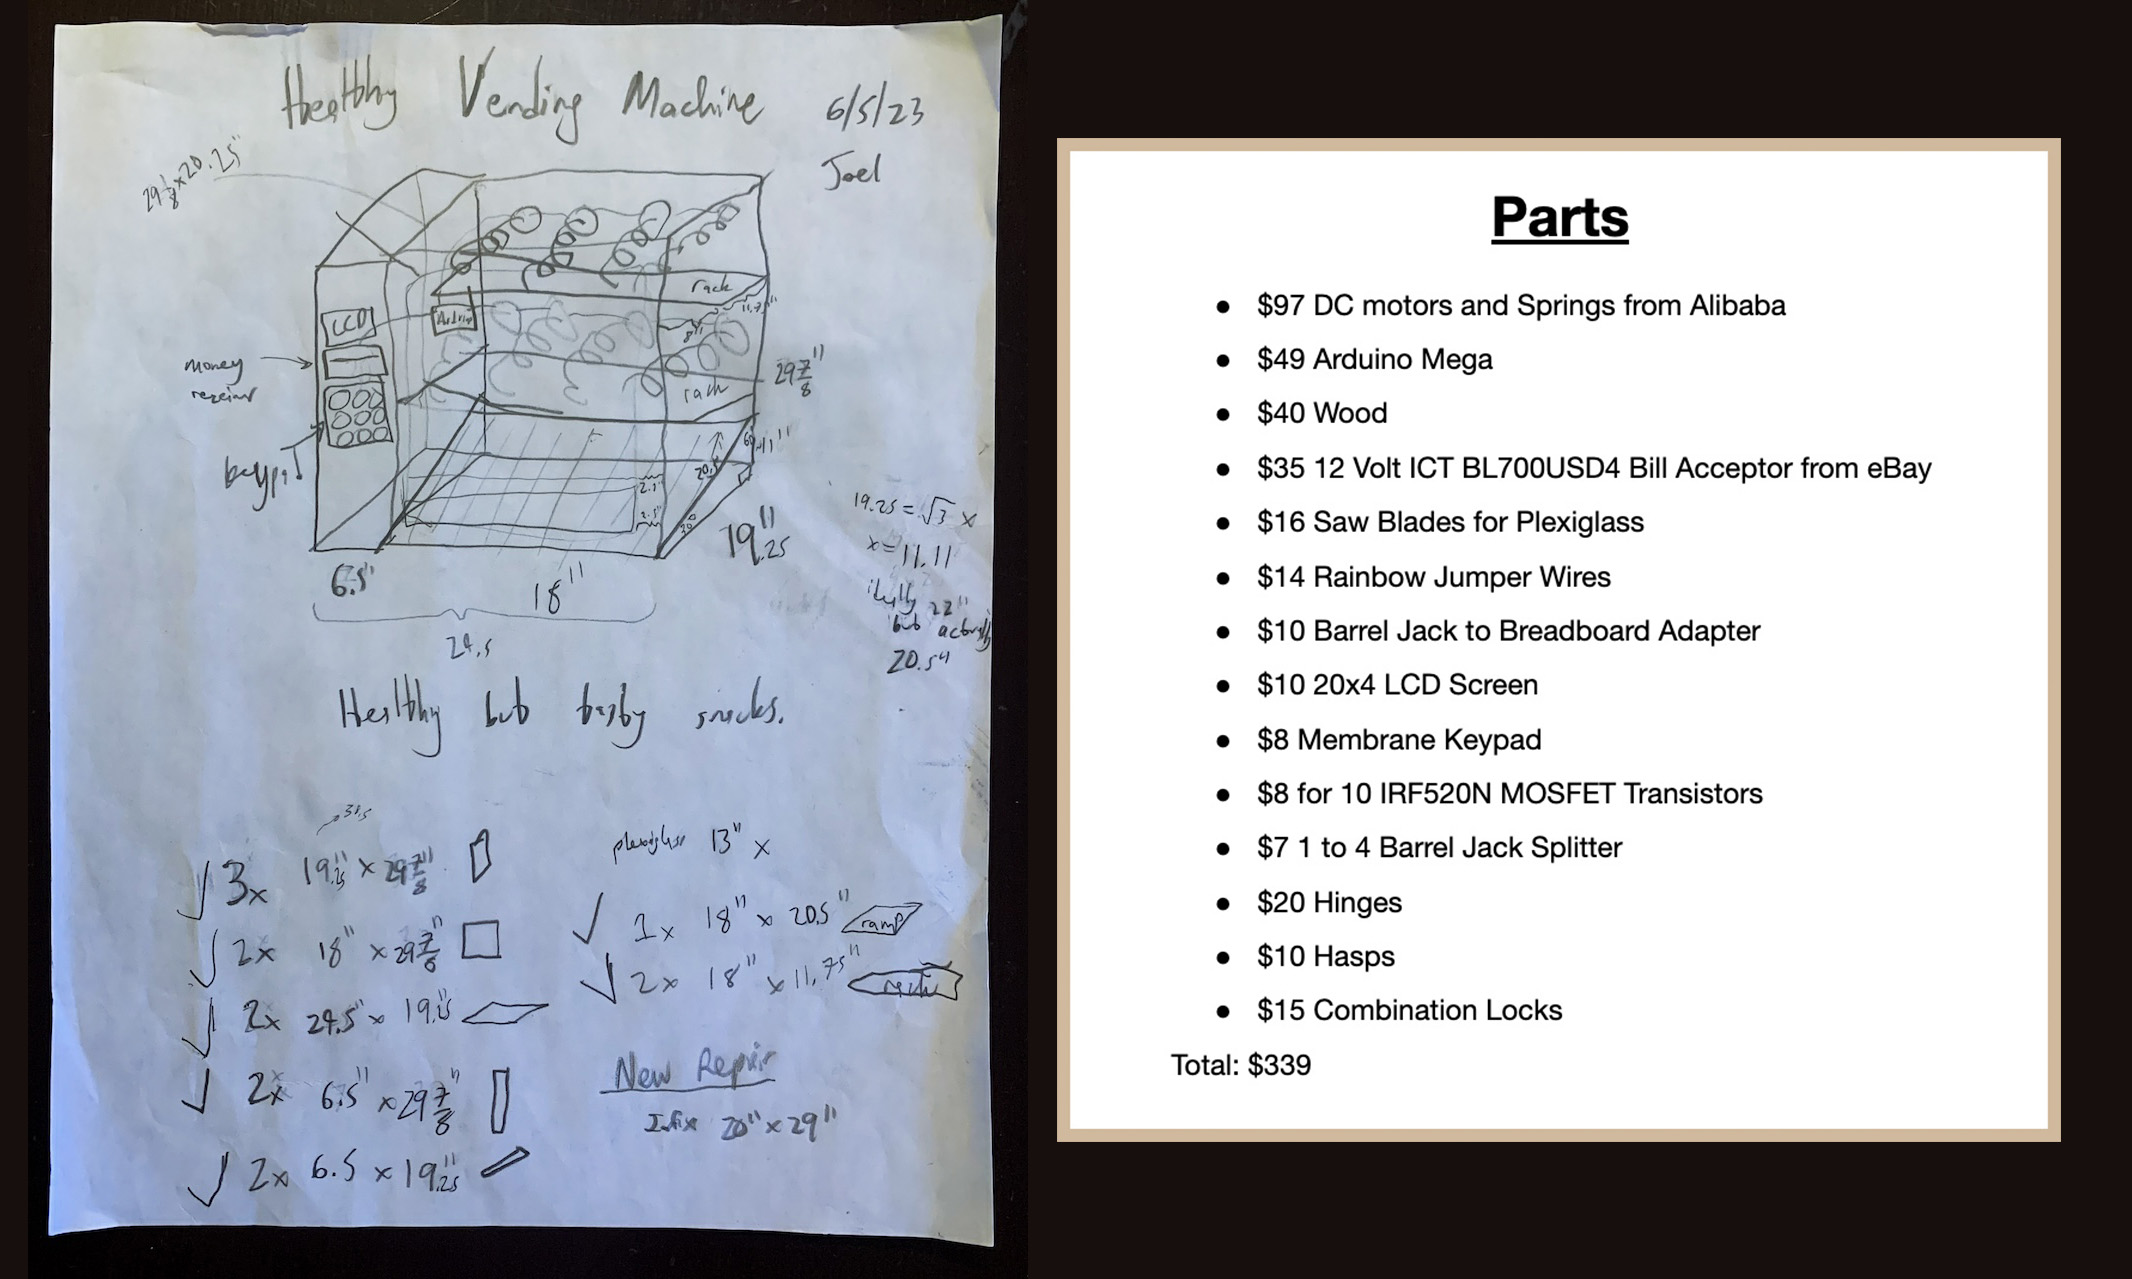 Healthy Vending Machine
6/5/23
Joel
29 1/8 x 20.25"
LCD
money
rack
11.75"
8"
rack
29 7/8"
11"
60
20.5
2.1"
2.5"
30°
19.25"
6.5"
18"
24.5
19.25 = √3 x
x = 11.11
22"
but actually
20.5"
Healthy but tasty snacks.
3x 19.25" x 29 7/8"
2x 18" x 29 7/8"
2x 24.5" x 19.25"
2x 6.5" x 29 7/8"
2x 6.5 x 19.25"
plexiglass 13" x
1x 18" x 20.5" ramp
2x 18" x 11.75"
New Repair
20" x 29"
Parts
• $97 DC motors and Springs from Alibaba
• $49 Arduino Mega
• $40 Wood
• $35 12 Volt ICT BL700USD4 Bill Acceptor from eBay
• $16 Saw Blades for Plexiglass
• $14 Rainbow Jumper Wires
• $10 Barrel Jack to Breadboard Adapter
• $10 20x4 LCD Screen
• $8 Membrane Keypad
• $8 for 10 IRF520N MOSFET Transistors
• $7 1 to 4 Barrel Jack Splitter
• $20 Hinges
• $10 Hasps
• $15 Combination Locks
Total: $339